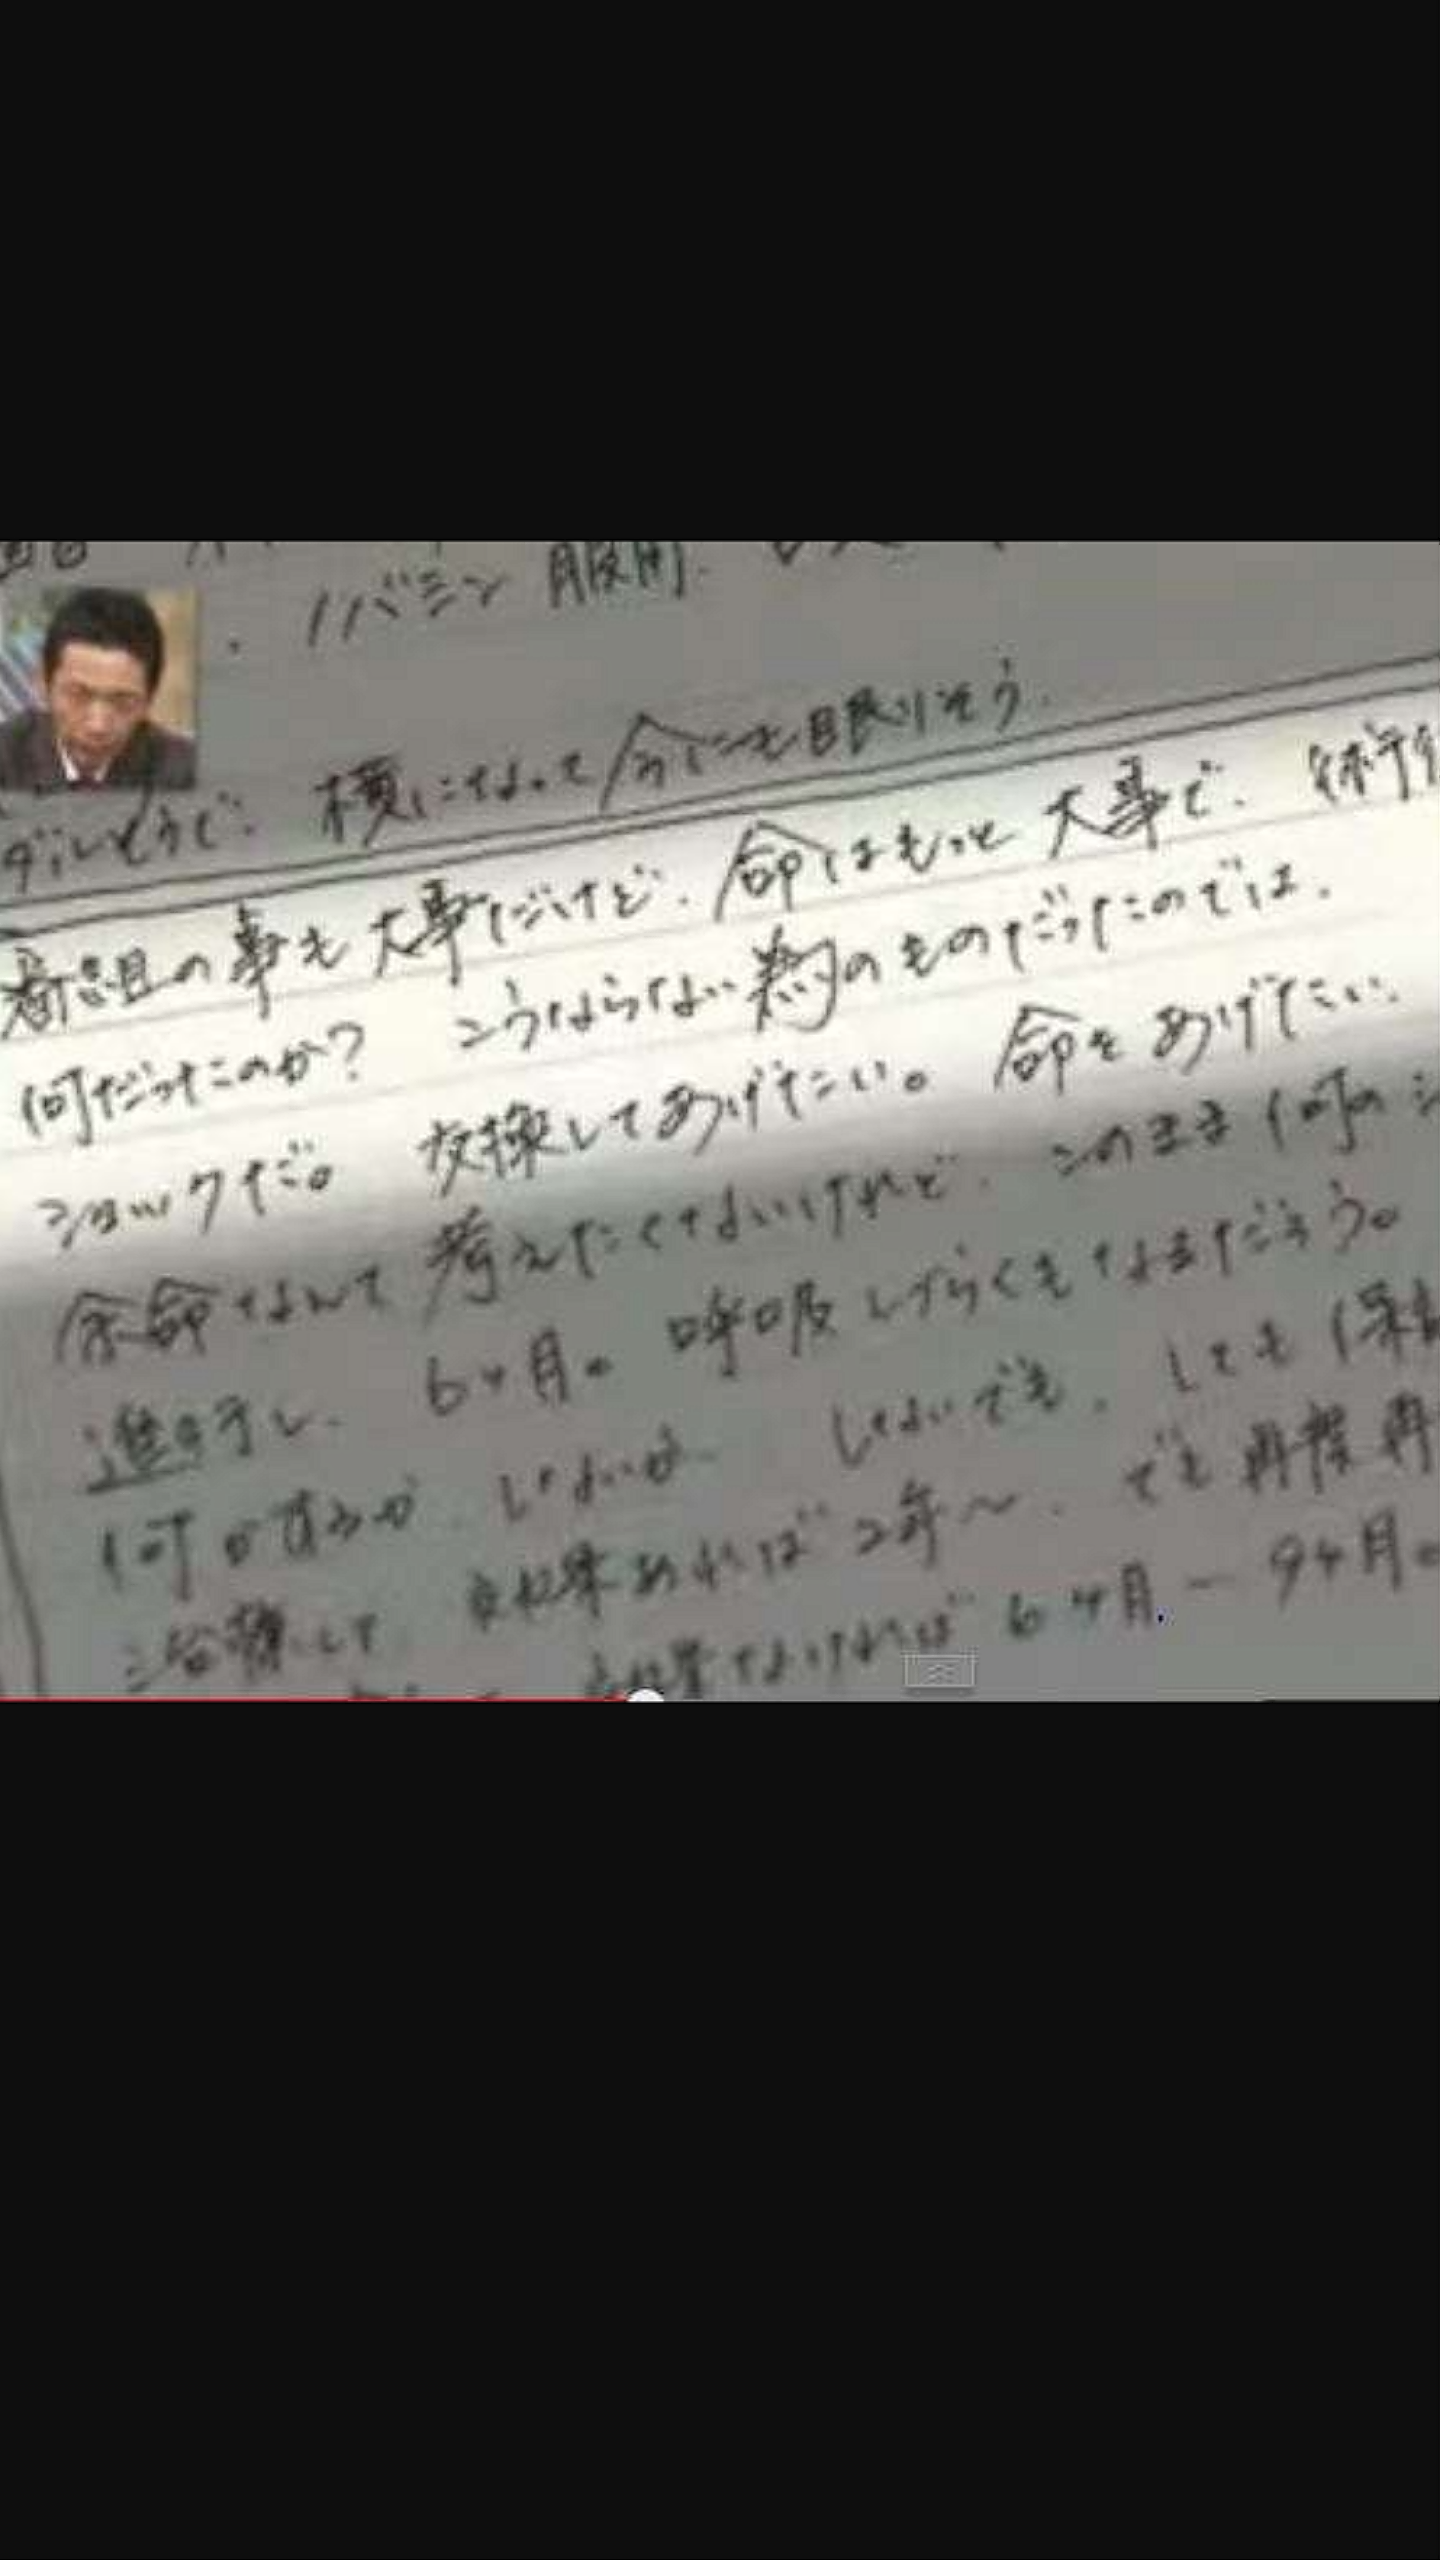 ノバミン 服用.
ダルそうで. 横になって今にも眠りそう.
番組の事も大事だけど. 命はもっと大事で.
何だったのか? こうならない為のものだったのでは.
ショックだ。 交換してあげたい。 命をあげたい.
余命なんて考えたくないけれど. このまま何の
進行し. 6ヶ月。 呼吸しづらくもなるだろう。
しないでも. しても
治療して 効果あれば 2年〜. でも再発
効果なければ 6ヶ月 − 9ヶ月。